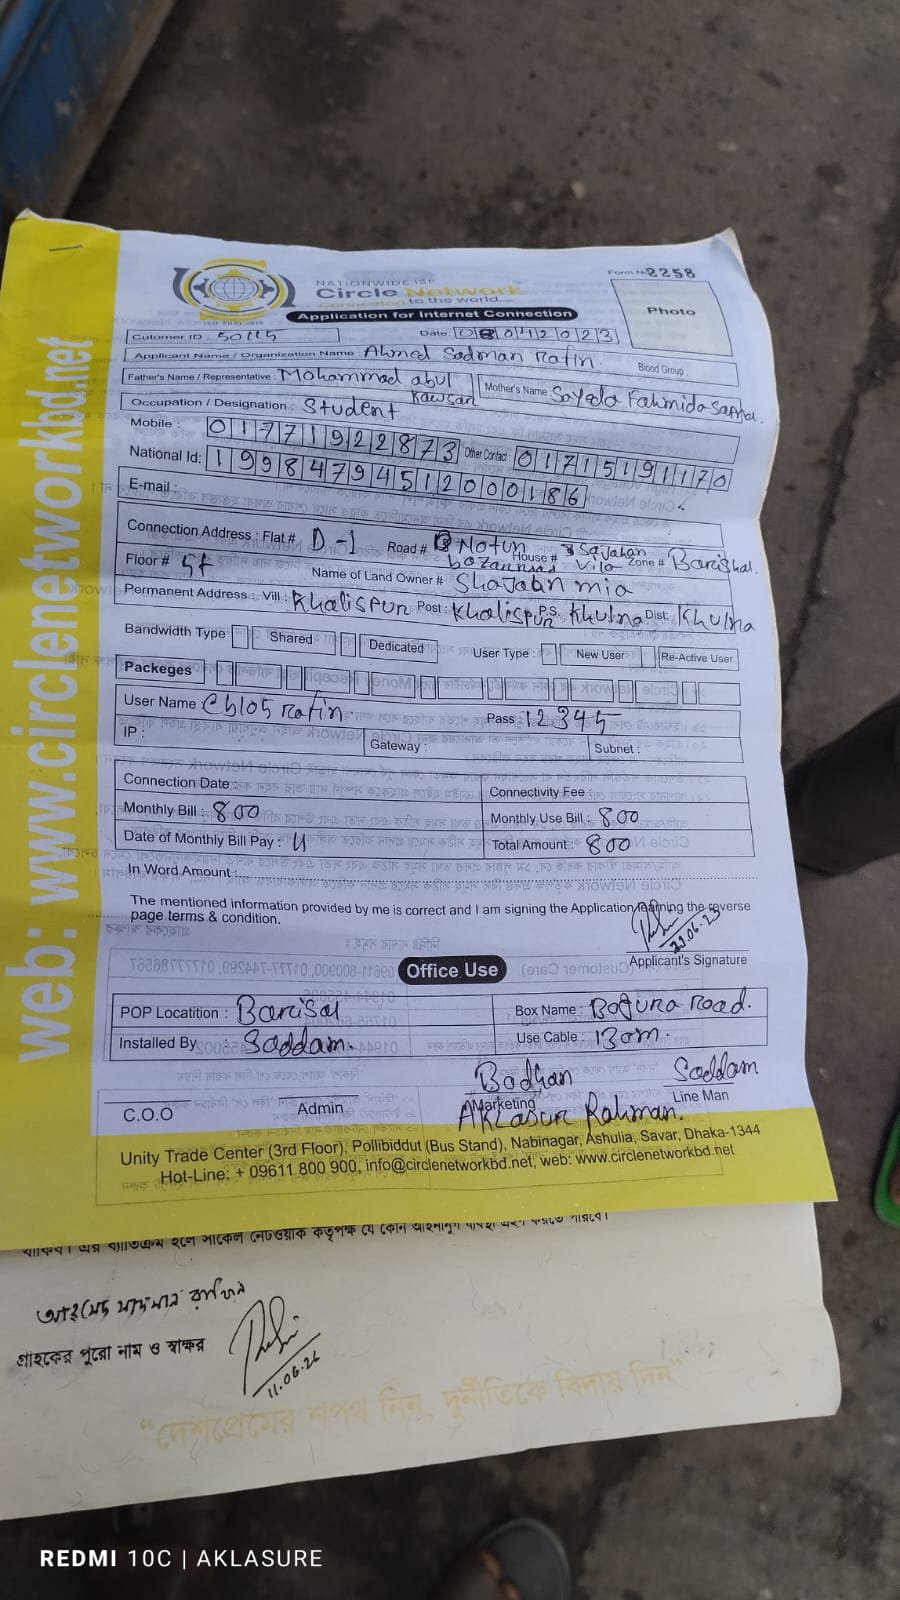 web: www.circlenetworkbd.net
NATIONWIDE ISP
Form No 2258
Circle Network
Connected to the world....
ISO 9001:2015
Application for Internet Connection
Photo
Cutomer ID : 50115 Date:
Applicant Name / Organization Name : Ahmed Sadman Rafin. Blood Group :
Father's Name / Representative : Mohammad abul kawsar Mother's Name
Occupation / Designation : Student
Mobile : 01771922873 Other Contact : 01715191170
National Id: 19984794512000186
E-mail :
Connection Address : Flat # D-1 Road # Notun House # Zone # Barishal.
Floor # Name of Land Owner # mia
Permanent Address : Vill : Khalispur Post : Khalispur P.S. Khulna Dist: Khulna
Bandwidth Type Shared Dedicated User Type : New User Re-Active User
Packeges
User Name Pass : 12345
IP : Gateway : Subnet :
Connection Date : Connectivity Fee :
Monthly Bill : 800 Monthly Use Bill : 800
Date of Monthly Bill Pay : Total Amount : 800
In Word Amount :
The mentioned information provided by me is correct and I am signing the Application the reverse
page terms & condition.
Applicant's Signature
Office Use
POP Locatition : Barisal Box Name : Bogura Road.
Installed By Saddam. Use Cable : 130m.
Badhan Saddam
C.O.O Admin Marketing Line Man
Aklasur Rahman.
Unity Trade Center (3rd Floor), Pollibiddut (Bus Stand), Nabinagar, Ashulia, Savar, Dhaka-1344
Hot-Line: + 09611 800 900, info@circlenetworkbd.net, web: www.circlenetworkbd.net
গ্রাহকের পুরো নাম ও স্বাক্ষর
11.06.26
“দেশপ্রেমের শপথ নিন, দুর্নীতিকে বিদায় দিন”
REDMI 10C | AKLASURE